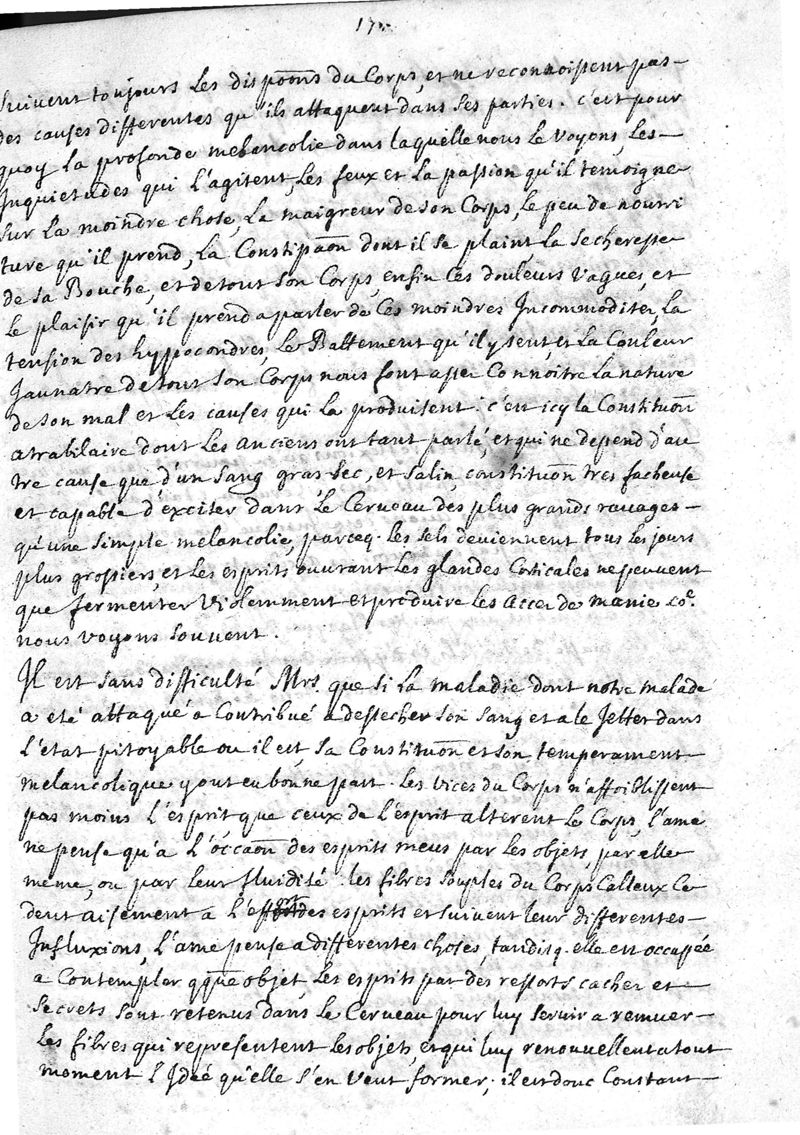 17.
suivent toujours les dispôons du Corps, et ne reconnoissent pas
des causes differentes qu'ils attaquent dans ses parties. c'est pour
quoy la profonde melancolie dans laquelle nous le voyons, les
Inquietudes qui l'agitent, les feux et la passion qu'il temoigne
sur la moindre chose, la maigreur de son Corps, le peu de nourri
ture qu'il prend, la Constipaôn dont il se plaint la secheresse
de sa Bouche, et de tout son Corps, enfin ces douleurs vagues, et
le plaisir qu'il prend a parler de ces moindres Incommoditez, la
tension des hypocondres, le Battement qu'il y sent, et la Couleur
Jaunatre de tout son Corps nous font assez Connoitre la nature
de son mal et les causes qui la produisent. c'est icy la Constituôn
atrabilaire dont les anciens ont tant parlé, et qui ne depend d'au
tre cause que d'un sang gras sec, et salin, constituôn tres facheuse
et capable d'exciter dans le Cerveau des plus grands ravages
qu'une simple melancolie, parceq. les sels deviennent tous les jours
plus grossiers, et les esprits ouvrant les glandes Corticales ne peuvent
que fermenter violemment et produire les accez de manie co.e
nous voyons souvent.
Il est sans difficulté Mrs. que si la maladie dont notre malade
a eté attaqué a contribué a dessecher son sang et a le Jetter dans
l'état pitoyable ou il est, sa Constituôn et son temperament
melancolique y ont eu bonne part. les vices du Corps n'affoiblissent
pas moins l'esprit que ceux de l'esprit alterent le Corps, l'ame
ne pense qu'a l'occaôn des esprits meus par les objets, par elle
meme, ou par leur fluidité. les fibres souples du Corps Calleux Ce
dent aisement a l'effort des esprits et suivent leur differentes
Influxions, l'ame pense a differentes choses, tandisq. elle est occupée
a Contempler qque objet, les esprits par des ressorts cachez et
secrets sont retenus dans le Cerveau pour luy servir a remuer
les fibres qui representent les objets, et qui luy renouvellent a tout
moment l'Idée qu'elle s'en veut former; il est donc Constant